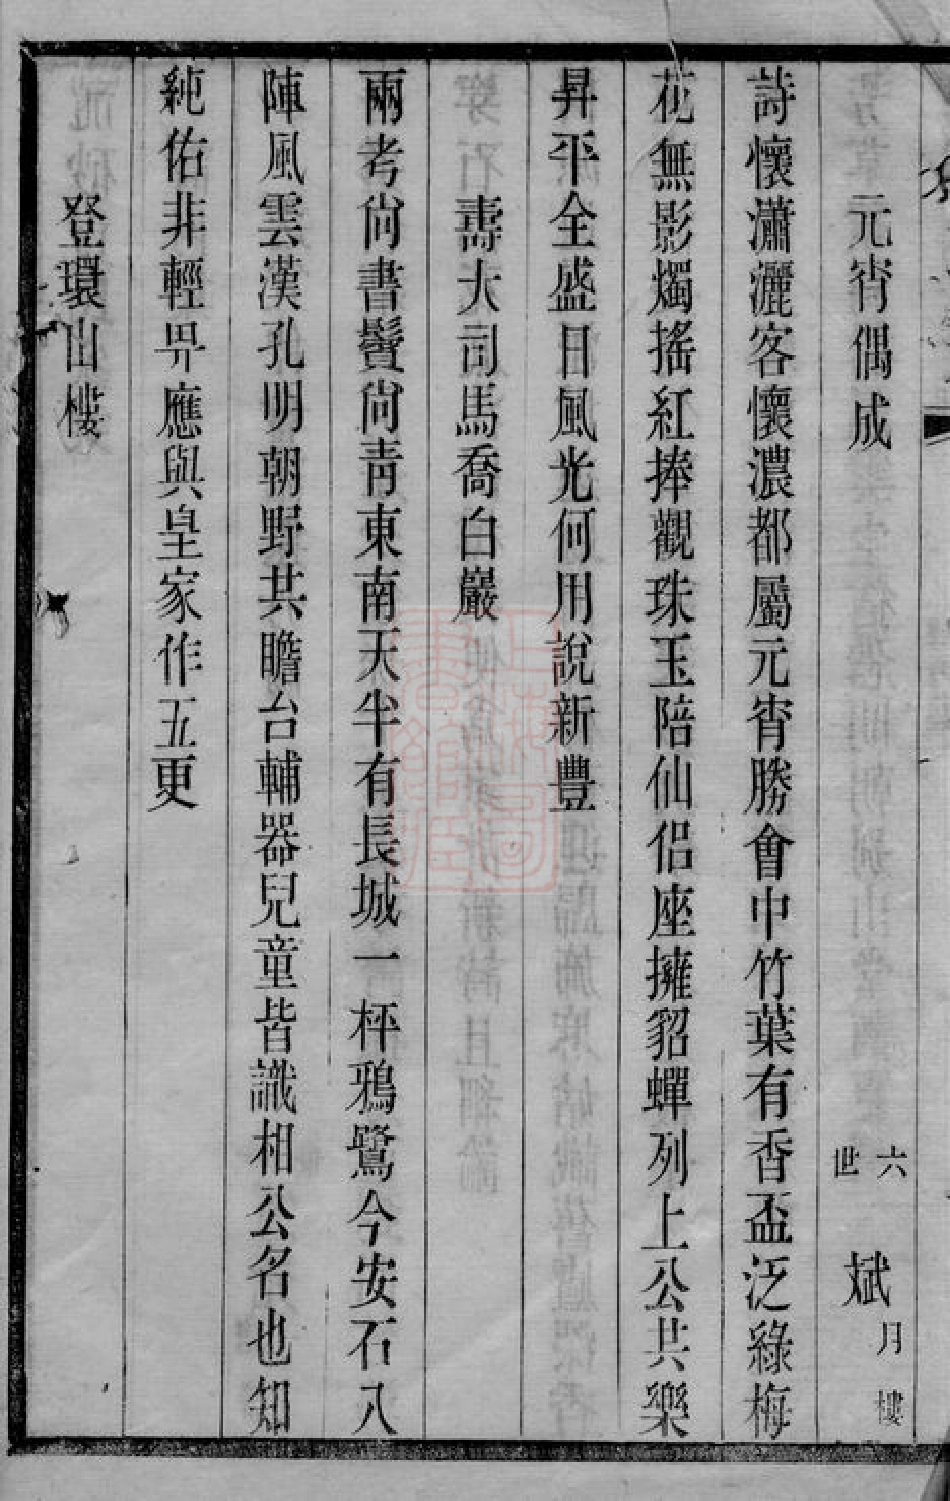 元宵偶成 六世 斌 月樓
詩懷瀟灑客懷濃都屬元宵勝會中竹葉有香盃泛綠梅
花無影燭搖紅捧觀珠玉陪仙侶座擁貂蟬列上公共樂
昇平全盛日風光何用說新豐
壽大司馬喬白巖
兩考尚書鬢尚青東南天半有長城一枰鴉鷺今安石八
陣風雲漢孔明朝野共瞻台輔器兒童皆識相公名也知
純佑非輕畀應與皇家作五更
登環山樓